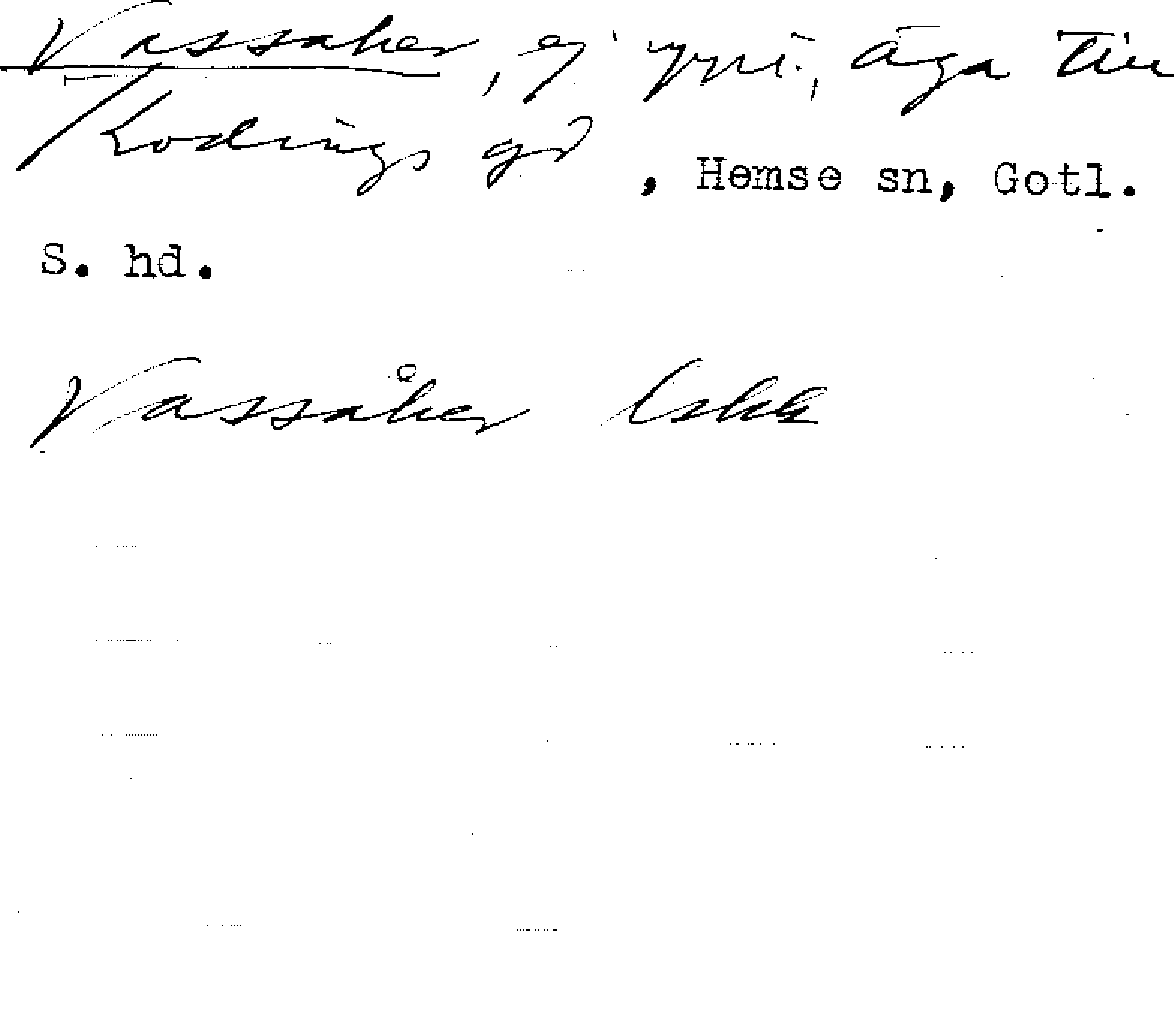 Vassaker, ej ypi., äga till
Kodings gd, Hemse sn, Gotl.
S. hd.
Vassåker Iskk